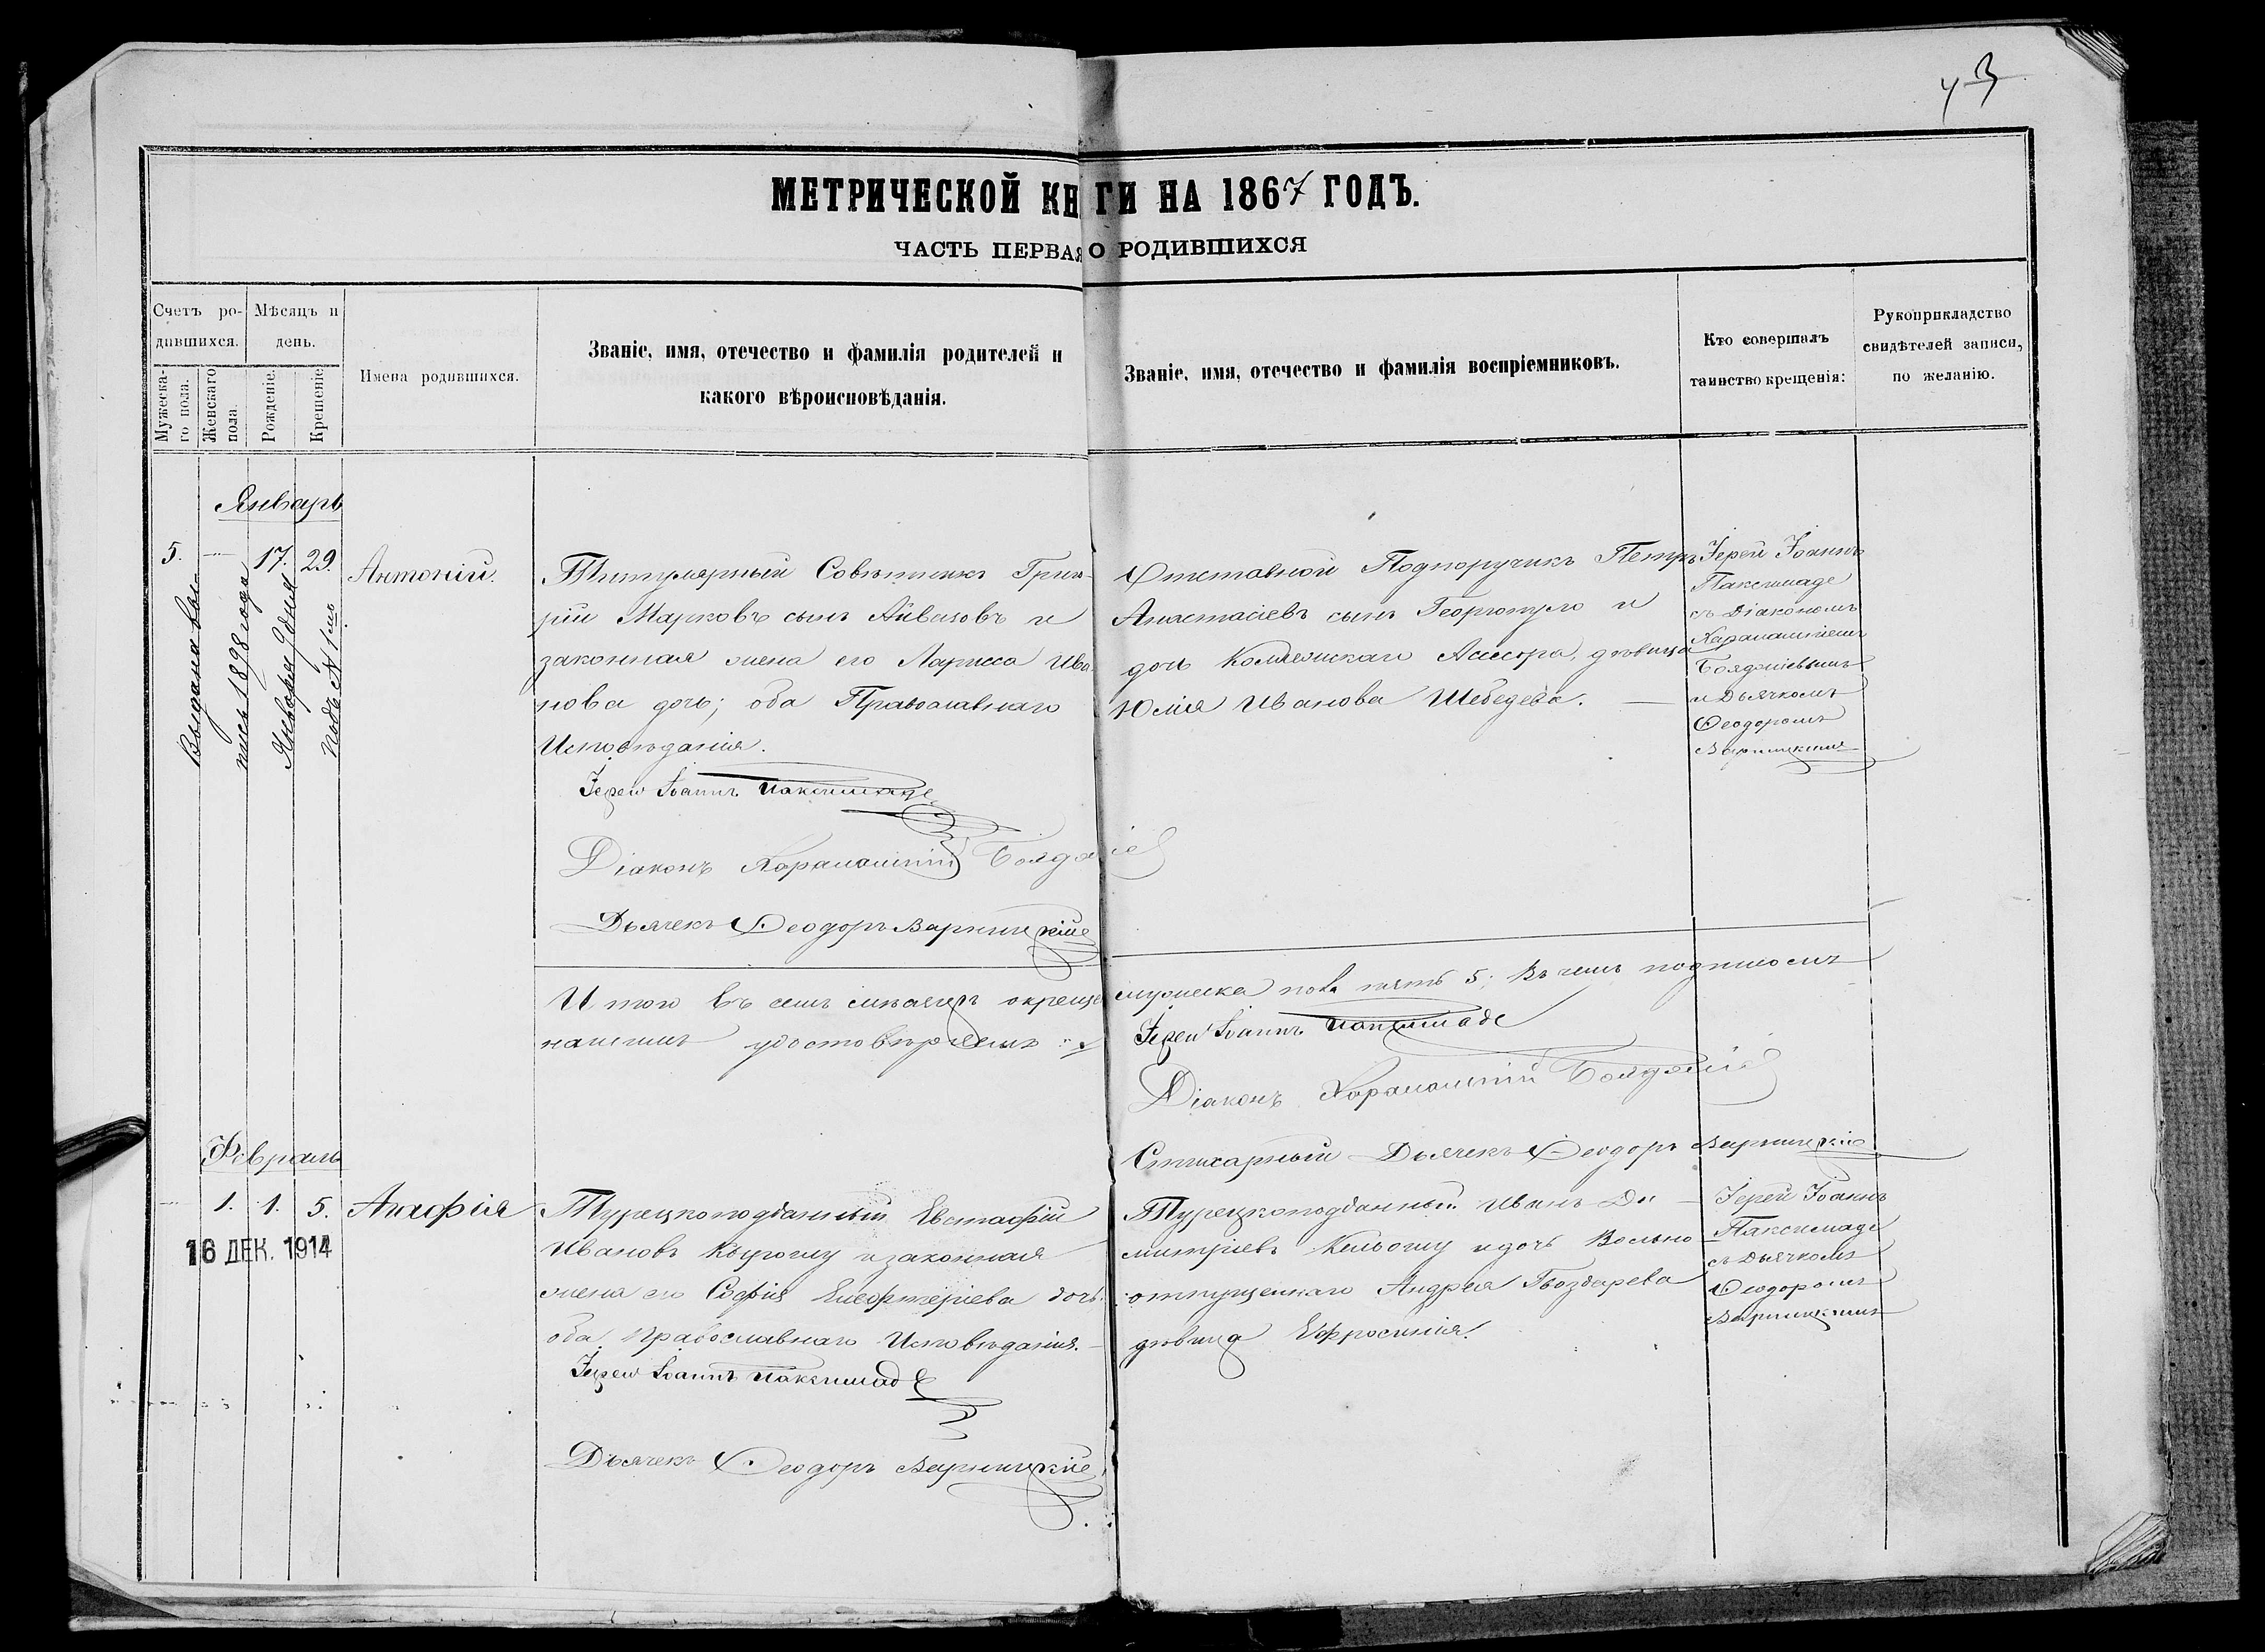 43
МЕТРИЧЕСКОЙ КНИГИ НА 1867 ГОДЪ.
ЧАСТЬ ПЕРВАЯ О РОДИВШИХСЯ
Счетъ ро-
дившихся.
Мужеска-
го пола.
Женскаго
пола.
Мѣсяцъ и
день.
Рожденіе.
Крещеніе
Имена родившихся.
Званіе, имя, отечество и фамилія родителей и
какого вѣроисповѣданія.
Званіе, имя, отечество и фамилія воспріемниковъ.
Кто совершалъ
таинство крещенія:
Рукоприкладство
свидѣтелей записи,
по желанію.
Январь
5. — 17. 29. Антоній.
Выдана вы-
пись 1898 года
Января 9 дня
подъ № 1/мъ
Титулярный Совѣтникъ Григо-
рій Марковъ сынъ Айвазовъ и
законная жена его Лариса Ива
нова дочь; оба Православнаго
Исповѣданія.
Іерей Іоаннъ Паксимаде
Діаконъ Харалампій Бояджіе
Дьячекъ Ѳеодоръ Варницкій
Отставной Подпоручикъ Петръ
Анастасіевъ сынъ Георгопуло и
дочь Коллежскаго Асессора, дѣвица
Юлія Иванова Шебедева. —
Іерей Іоаннъ
Паксимаде
съ Діакономъ
Харалампіемъ
Бояджіевымъ
и Дьячкомъ
Ѳеодоромъ
Варницкимъ
И того въ семъ мѣсяцѣ окреще мужеска пола пять 5; въ чемъ подписомъ
нашимъ удостовѣряемъ
Іерей Іоаннъ Паксимаде
Діаконъ Харалампій Бояджіе
Стихарный Дьячекъ Ѳеодоръ Варницкій
Февраль
— 1. 1. 5. Агафія
16 ДЕК. 1914
Турецкоподданный Евстафій
Ивановъ Кыроглу и законная
жена его Софія Елефтеріева дочь
оба Православнаго Исповѣданія. —
Іерей Іоаннъ Паксимаде
Дьячекъ Ѳеодоръ Варницкій
Турецкоподданный Иванъ Ди —
митріевъ Кельоглу и дочь Вольно
отпущеннаго Андрея Гвоздарева
дѣвица Ефросинія.
Іерей Іоаннъ
Паксимаде
съ Дьячкомъ
Ѳеодоромъ
Варницкимъ